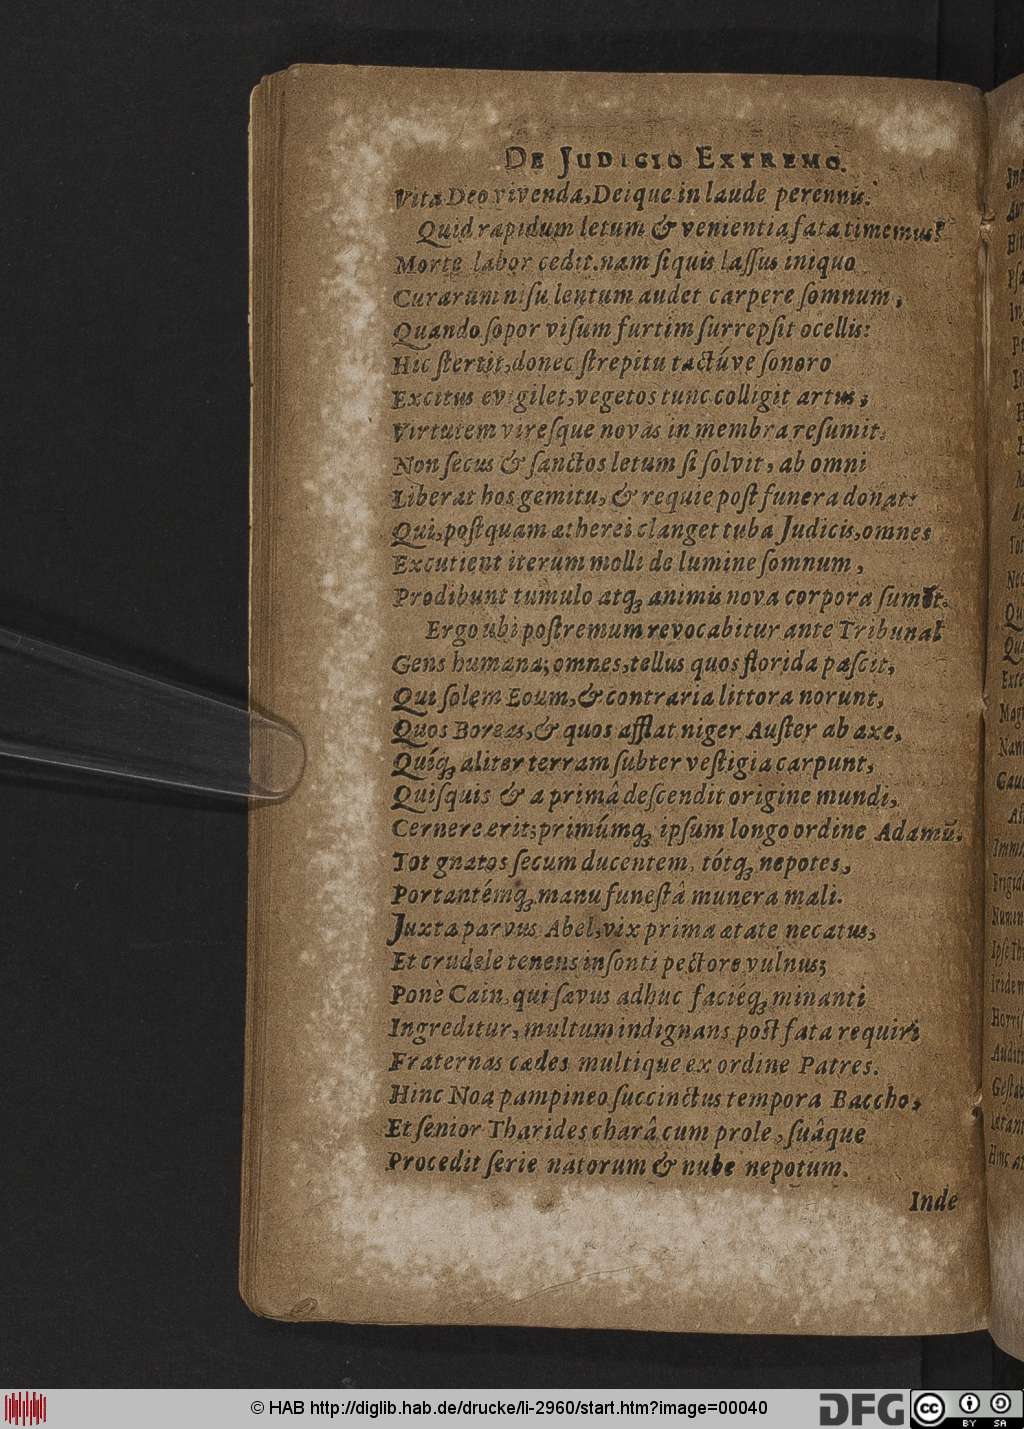 DE JUDICIO EXTREMO.
Vita Deo vivenda, Deique in laude perennis.
Quid rapidum letum & venientia fata timemus?
Morte labor cedit. nam si quis lassus iniquo
Curarum nisu lentum audet carpere somnum,
Quando sopor visum furtim surrepsit ocellis:
Hic stertit, donec strepitu tactúve sonoro
Excitus evigilet, vegetos tunc colligit artus,
Virtutem viresque novas in membra resumit.
Non secus & sanctos letum si solvit, ab omni
Liberat hos gemitu, & requie post funera donat:
Qui, postquam ætherei clanget tuba Judicis, omnes
Excutient iterum molli de lumine somnum,
Prodibunt tumulo atq; animis nova corpora sument.
Ergo ubi postremum revocabitur ante Tribunal
Gens humana; omnes, tellus quos florida pascit,
Qui solem Eoum, & contraria littora norunt,
Quos Boreas, & quos afflat niger Auster ab axe,
Quíq; aliter terram subter vestigia carpunt,
Quisquis & a primâ descendit origine mundi,
Cernere erit; primúmq; ipsum longo ordine Adamũ.
Tot gnatos secum ducentem, tótq; nepotes,
Portantémq; manu funestâ munera mali.
Juxta parvus Abel, vix prima ætate necatus,
Et crudele tenens insonti pectore vulnus;
Ponè Cain, qui sævus adhuc faciéq; minanti
Ingreditur, multum indignans post fata requiri
Fraternas cædes multique ex ordine Patres.
Hinc Noa pampineo succinctus tempora Baccho,
Et senior Tharides charâ cum prole, suâque
Procedit serie natorum & nube nepotum.
Inde
© HAB http://diglib.hab.de/drucke/li-2960/start.htm?image=00040
DFG
cc
BY SA